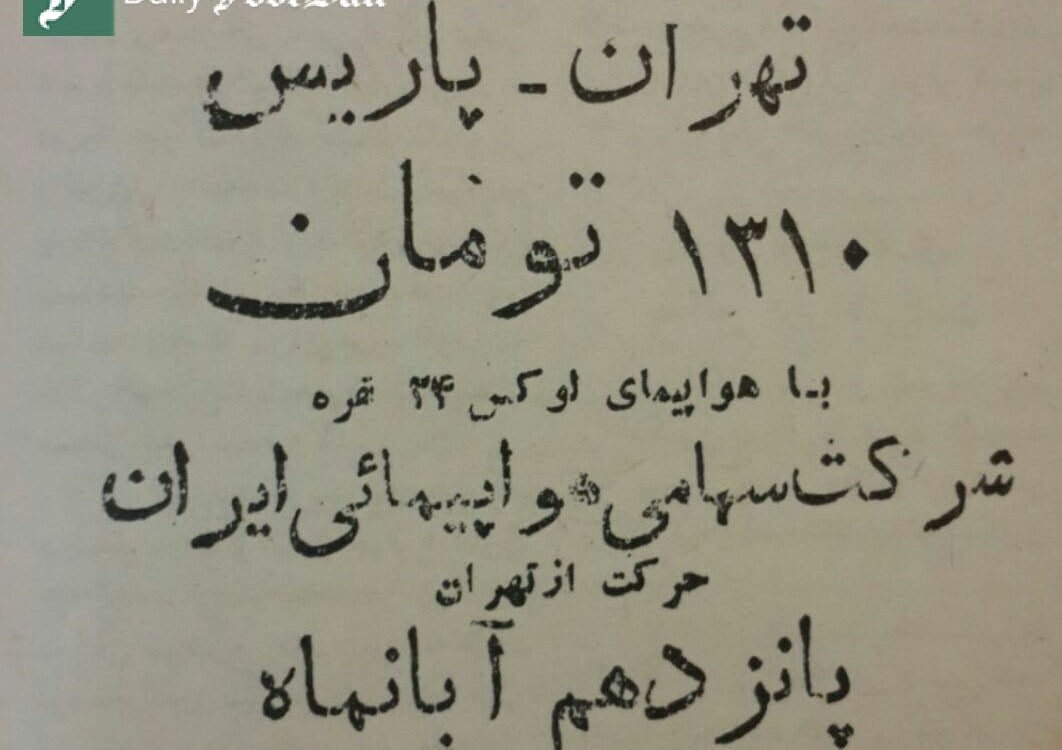 Daily
تهران - پاریس
۱۳۱۰ تومان
با هواپیمای لوکس ۲۴ نفره
شرکت سهامی هواپیمائی ایران
حرکت از تهران
پانزدهم آبانماه